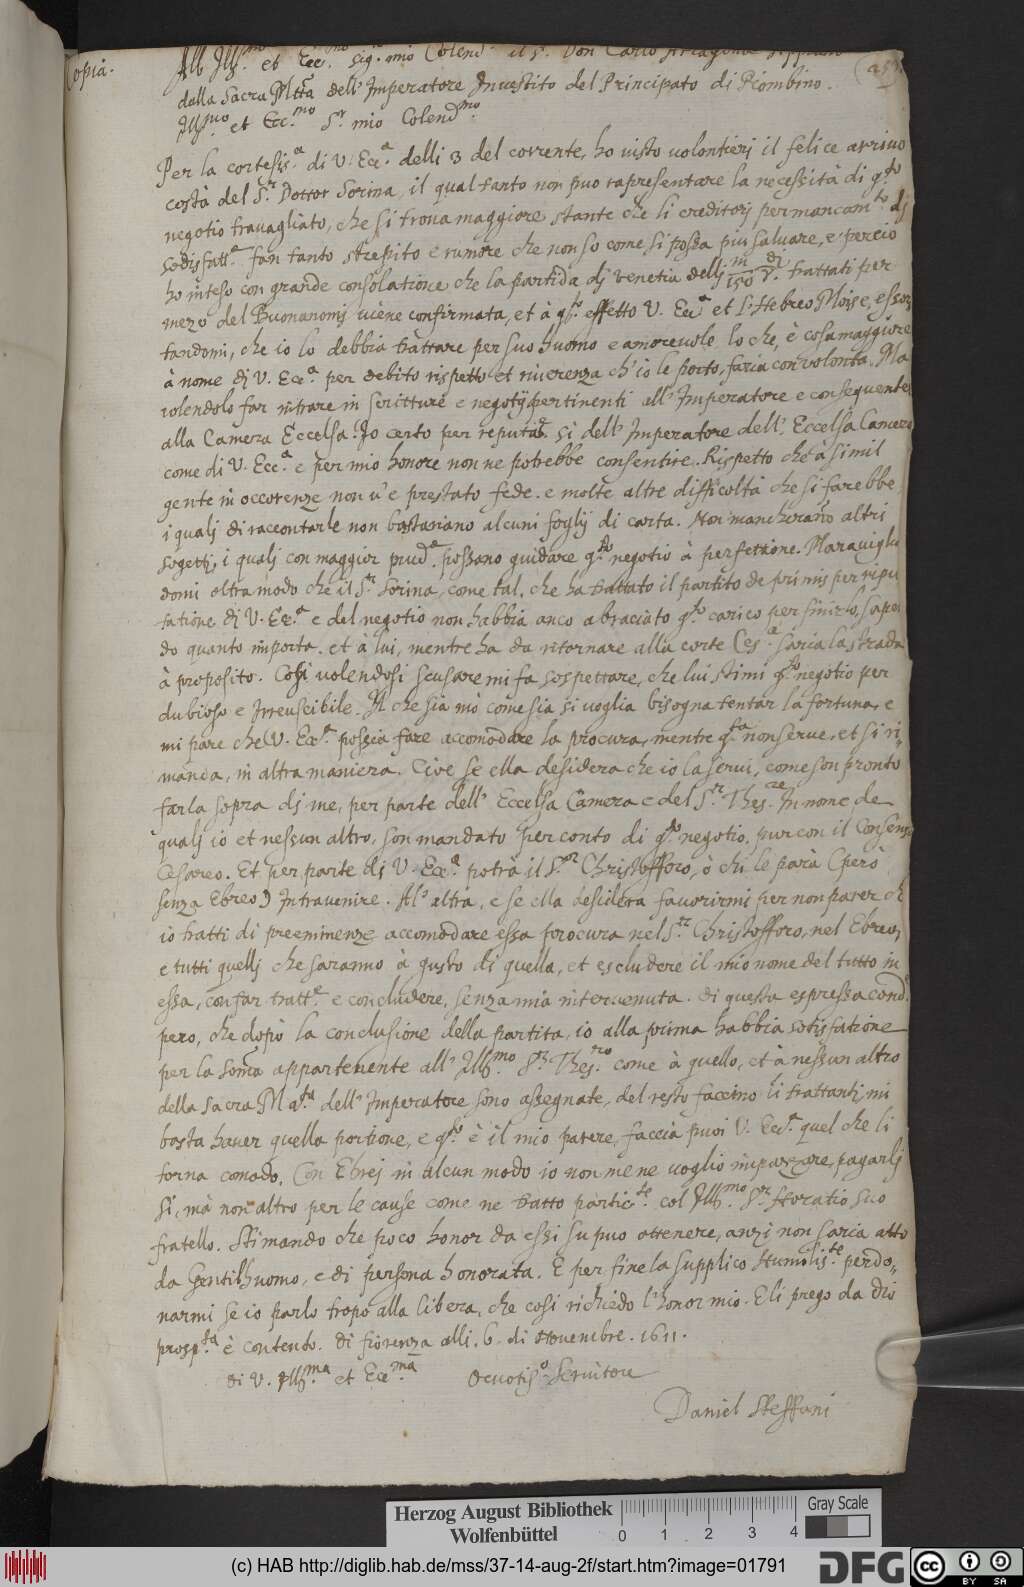 Copia.
All' Ill.mo et Ecc.mo Sig.r mio Colend.mo il S.r Don Carlo Aragona Appiano
dalla Sacra M.tta dell' Imperatore Inuestito del Principato di Piombino.
Ill.mo et Ecc.mo S.r mio Colend.mo
Per la cortesis.a di V. Ecc.a delli 3 del corrente, ho uisto uolontierj il felice arriuo
costà del S.r Dottor Sorina, il qual tanto non puo rapresentare la necessità di q.sto
negotio trauagliato, che si troua maggiore, stante che li creditorj per mancam.to dj
sodisfatt.e fan tanto strepito e rumore che non so come si possa piu saluare, e perciò
ho inteso con grande consolatione che la partida dj Venetia dellj m/150 di V. trattati per
mezo del Buonanomj uiene confirmata, et à q.to effetto V. Ecc.a et l'Hebreo Moise, essor
tandomi, che io lo debbia trattare per suo huomo e amoreuole, lo che, è cosa maggiore
à nome dj V. Ecc.a per debito rispetto et riuerenza ch'io le porto, faria con uolonta. Ma
uolendolo far intrare in scritture e negotij pertinenti all' Imperatore e consequente
alla Camera Eccelsa. Io certo per reputat.e sì dell' Imperatore dell' Eccelsa Camera
come di V. Ecc.a e per mio honore non ne potrebbe consentire. Rispetto che à simil
gente in occorenze non u'è prestato fede, e molte altre difficoltà che si farebbe
i qualj di raccontarle non bastariano alcuni foglij di carta. Non mancheranno altri
sogettj, i qualj con maggior prud.a possano guidare q.sto negotio à perfettione. Marauiglia
domi oltra modo che il S.r Sorina, come tal, che ha trattato il partito de primis per ripu
tatione dj V. Ecc.a e del negotio non habbia anco abraciato q.to carico per finirlo, sapen
do quanto importa, et à lui, mentre ha da ritornare alla corte Ces.a saria la strada
à proposito. Cosi uolendosi scusare mi fa sospettare, che lui stimi q.sto negotio per
dubioso e irreuscibile. Il che sia mò come sia si uoglia bisogna tentar la fortuna, e
mi pare che V. Ecc.a possia fare accomodare la procura, mentre q.sta non serue, et si ri=
manda, in altra maniera. Cioe se ella desidera che io la serui, come son pronto
farla sopra dj me, per parte dell' Eccelsa Camera e del S.r Thes.re In nome de
qualj io et nessun altro, son mandato per conto di q.to negotio, pur con il Consenso
Cesareo. Et per parte dj V. Ecc.a potrà il S.or Christofforo, ò chi le parà (però
senza Ebreo) Intrauenire. Al' altra, e se ella desidera fauorirmi per non parer ch
io tratti di preeminenze accomodare essa procura nel S.or Christofforo, nel Ebreo,
e tutti quellj che saranno à gusto di quella, et escludere il mio nome del tutto in
essa, con far tratt.e e concludere, senza mia interuenuta. di questa espressa cond.e
pero, che dopò la conclusione della partita, io alla prima habbia sotisfatione
per la soma appartenente all' Ill.mo S.or Thes.ro come à quello, et à nessun altro
della Sacra M.ta dell' Imperatore sono assegnate, del resto faccino li trattanti, mi
basta hauer quella portione, e q.to è il mio parere, faccia puoi V. Ecc.a quel che li
torna comodo. Con Ebrej in alcun modo io non me ne uoglio impazzare, pagarlj
Si, mà non altro per le cause come ne tratto partic.te col Ill.mo S.or Horatio suo
fratello. Stimando che poco honor da essi su puo ottenere, anzi non saria atto
da Gentilhuomo, e di persona honorata. E per fine la supplico Humilis.te perdo=
narmi se io parlo tropo alla libera, che cosi richiedo l'honor mio. E li prego da Dio
prosp.tà è contento. di fiorenza alli. 6. di Nouembre. 1611.
di V. Ill.ma et Ecc.ma Deuotis.o Seruitore
Daniel Steffani
Herzog August Bibliothek
Wolfenbüttel
0 1 2 3 4
Gray Scale
(c) HAB http://diglib.hab.de/mss/37-14-aug-2f/start.htm?image=01791
DFG
cc BY SA